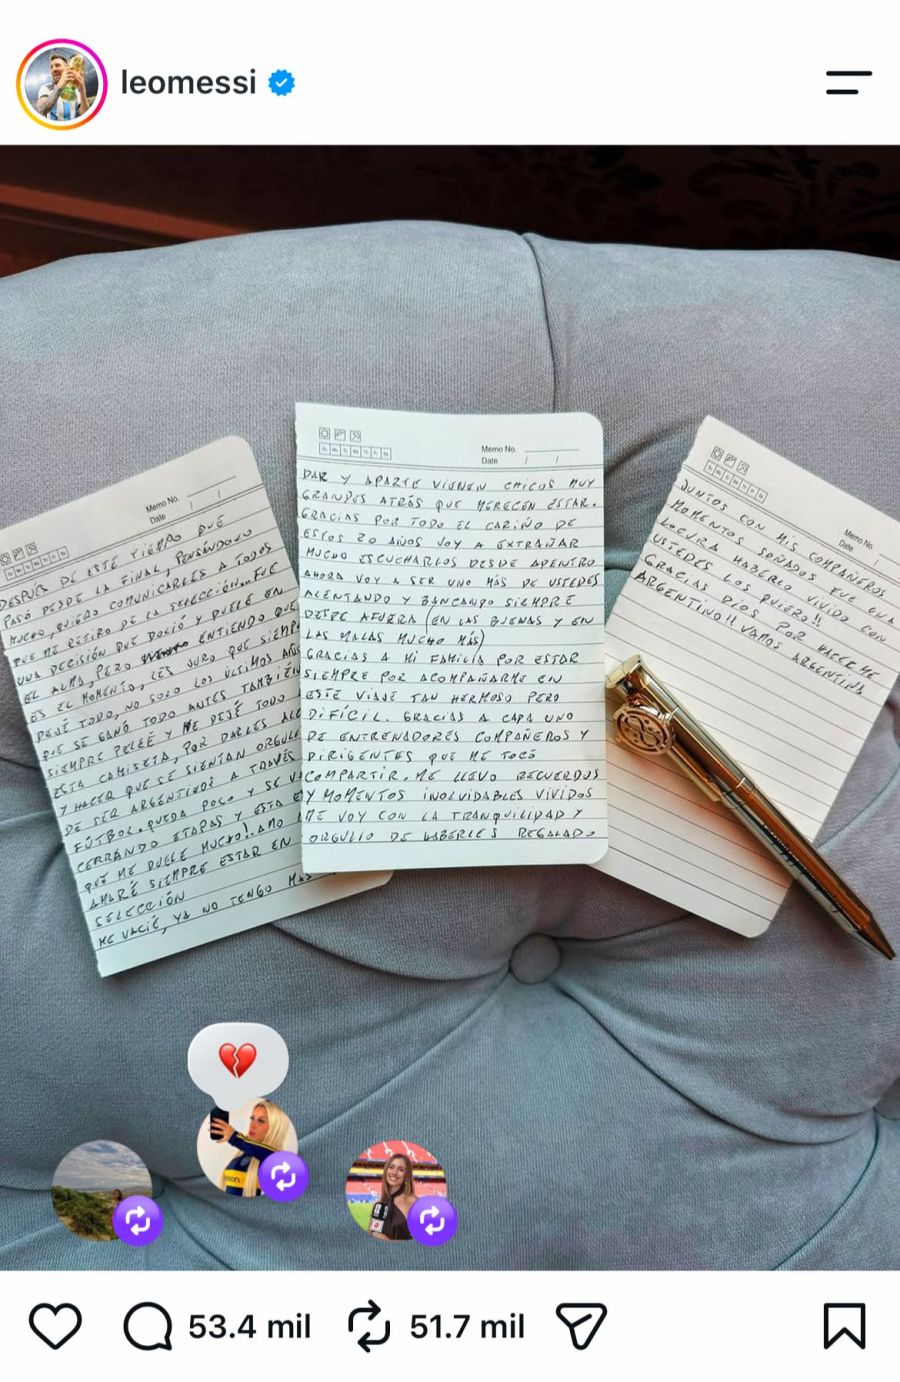 leomessi
Memo No.
Date / /
DESPUÉS DE ESTE TIEMPO QUE
PASÓ DESDE LA FINAL, PENSÁNDOLO
MUCHO, QUIERO COMUNICARLES A TODOS
QUE ME RETIRO DE LA SELECCIÓN... FUE
UNA DECISIÓN QUE DOLIÓ Y DUELE EN
EL ALMA, PERO ENTIENDO QUE
ES EL MOMENTO, LES JURO QUE SIEMP
DEJÉ TODO, NO SOLO LOS ÚLTIMOS AÑO
QUE SE GANÓ TODO ANTES TAMBIÉN
SIEMPRE PELEÉ Y ME DEJÉ TODO
ESTA CAMISETA, POR DARLES ALE
Y HACER QUE SE SIENTAN ORGULL
DE SER ARGENTINOS A TRAVÉS
FÚTBOL. QUEDA POCO Y SE VA
CERRANDO ETAPAS Y ESTA E
QUE ME DUELE MUCHO! AMO
AMARÉ SIEMPRE ESTAR EN
SELECCIÓN
ME VACIÉ, YA NO TENGO MAS
Memo No.
Date / /
DAR Y APARTE VIENEN CHICOS MUY
GRANDES ATRÁS QUE MERECEN ESTAR.
GRACIAS POR TODO EL CARIÑO DE
ESTOS 20 AÑOS VOY A EXTRAÑAR
MUCHO ESCUCHARLOS DESDE ADENTRO
AHORA VOY A SER UNO MÁS DE USTEDES
ALENTANDO Y BANCANDO SIEMPRE
DESDE AFUERA (EN LAS BUENAS Y EN
LAS MALAS MUCHO MÁS)
GRACIAS A MI FAMILIA POR ESTAR
SIEMPRE POR ACOMPAÑARME EN
ESTE VIAJE TAN HERMOSO PERO
DIFÍCIL. GRACIAS A CADA UNO
DE ENTRENADORES COMPAÑEROS Y
DIRIGENTES QUE ME TOCÓ
COMPARTIR. ME LLEVO RECUERDOS
Y MOMENTOS INOLVIDABLES VIVIDOS
ME VOY CON LA TRANQUILIDAD Y
ORGULLO DE HABERLES REGALADO
Memo No.
Date /
JUNTO CON MIS COMPAÑEROS
MOMENTOS SOÑADOS FUE UNA
LOCURA HABERLO VIVIDO CON
USTEDES LOS QUIERO!!
GRACIAS DIOS POR HACERME
ARGENTINO!! VAMOS ARGENTINA
53.4 mil
51.7 mil